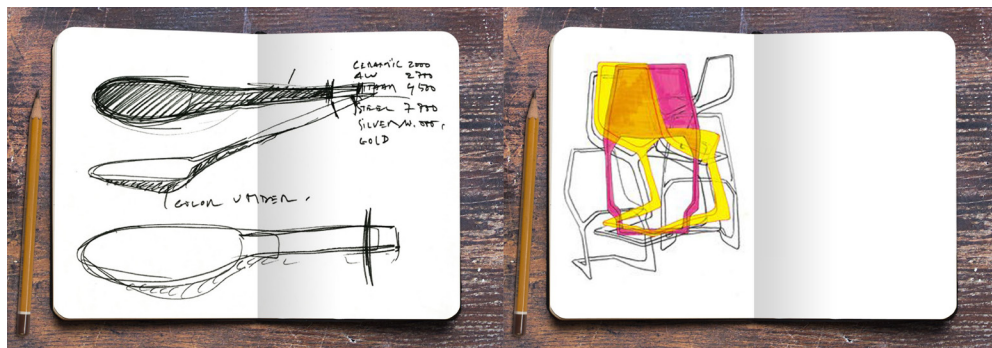 CERAMIC 2000
ALU 2700
TITAAN 4500
STEEL 7800
SILVER
GOLD
COLOR UNDER.